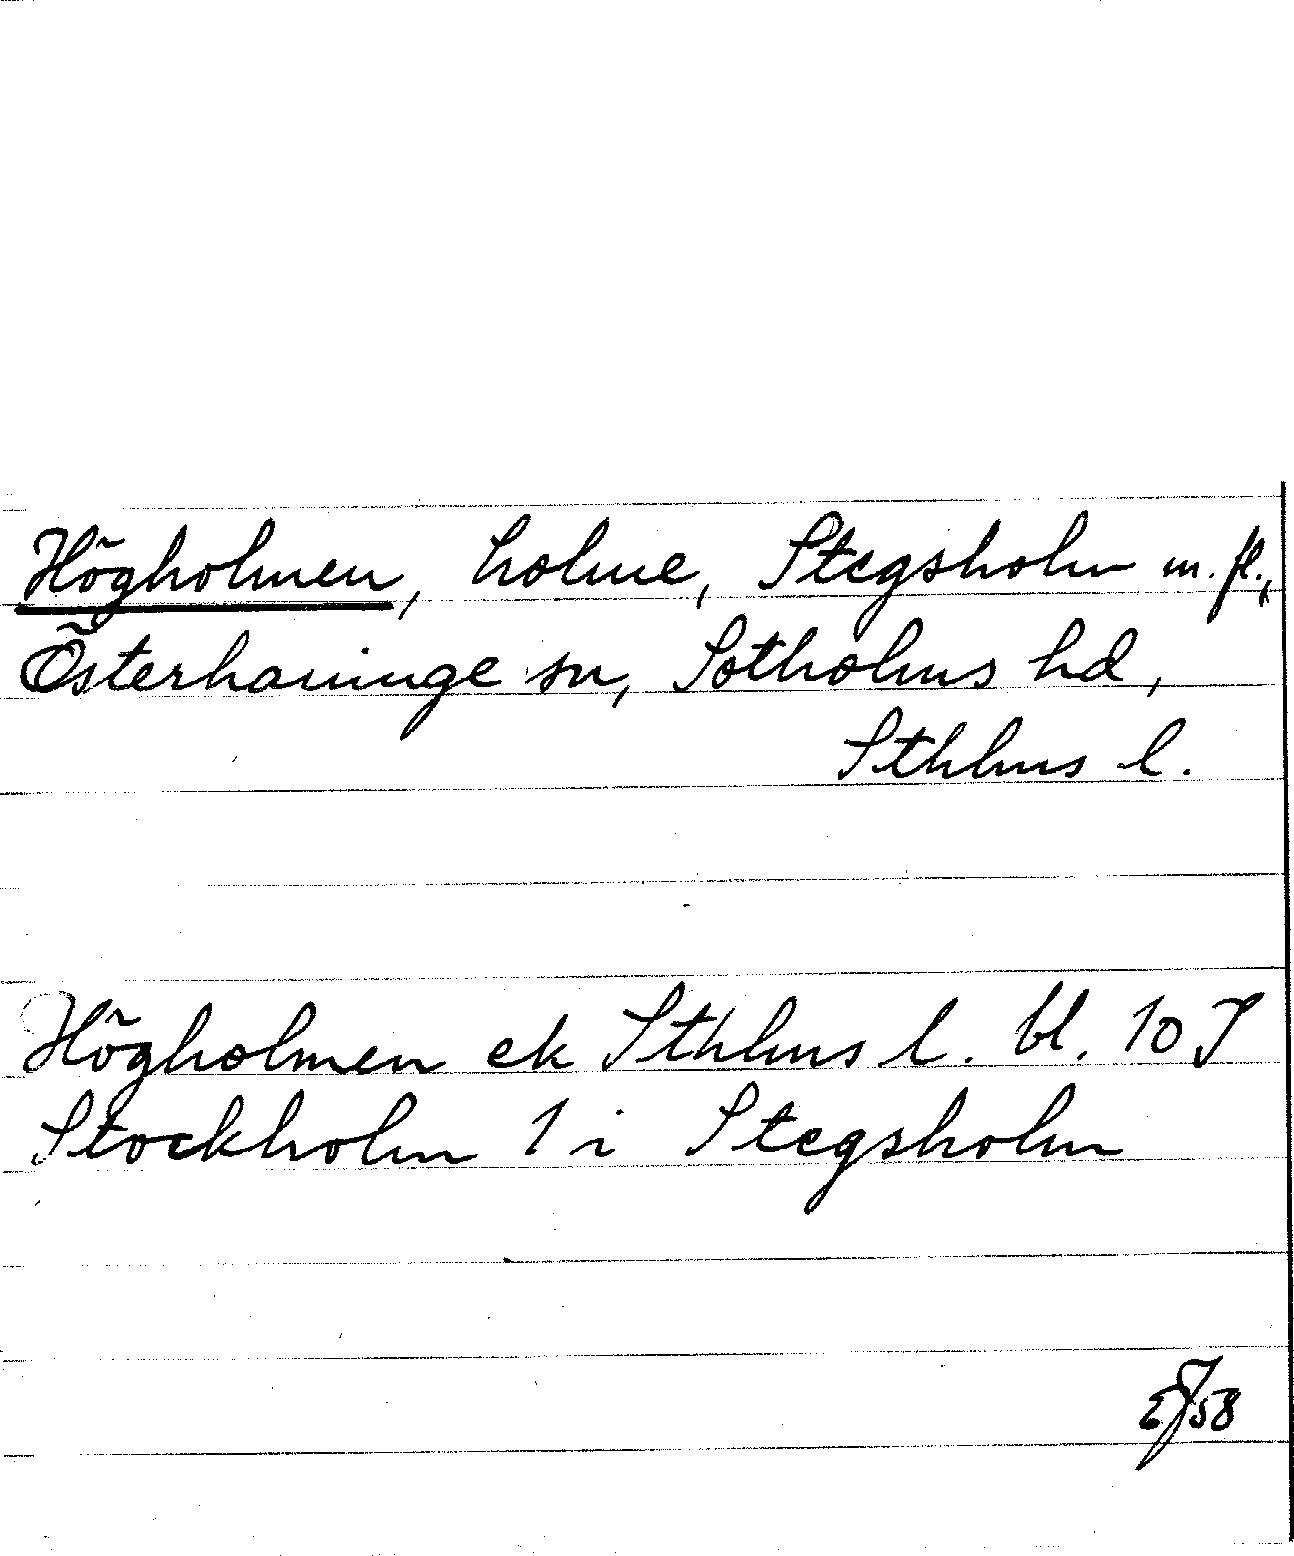 Högholmen, holme, Stegsholm m. fl.,
Österhaninge sn, Sotholms hd,
Sthlms l.
Högholmen ek Sthlms l. bl. 10 J
Stockholm 1 i Stegsholm
58